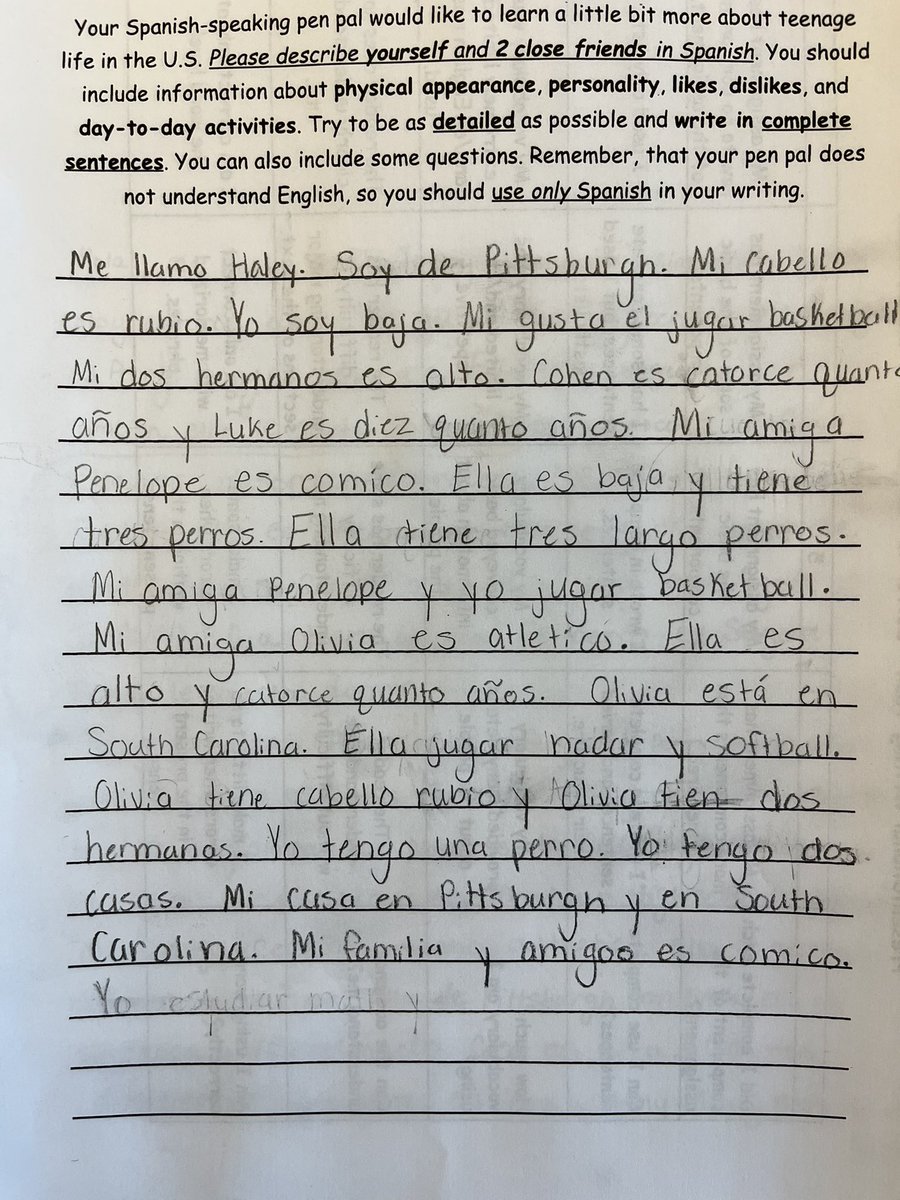 Your Spanish-speaking pen pal would like to learn a little bit more about teenage
life in the U.S. Please describe yourself and 2 close friends in Spanish. You should
include information about physical appearance, personality, likes, dislikes, and
day-to-day activities. Try to be as detailed as possible and write in complete
sentences. You can also include some questions. Remember, that your pen pal does
not understand English, so you should use only Spanish in your writing.
Me llamo Haley. Soy de Pittsburgh. Mi cabello
es rubio. Yo soy baja. Mi gusta el jugar basketball
Mi dos hermanos es alto. Cohen es catorce quanto
años y Luke es diez quanto años. Mi amiga
Penelope es comico. Ella es baja y tiene
tres perros. Ella tiene tres largo perros.
Mi amiga Penelope y yo jugar basketball.
Mi amiga Olivia es atletico. Ella es
alto y catorce quanto años. Olivia está en
South Carolina. Ella jugar nadar y softball.
Olivia tiene cabello rubio y Olivia tien dos
hermanas. Yo tengo una perro. Yo tengo dos
casas. Mi casa en Pittsburgh y en South
Carolina. Mi familia y amigos es comico.
Yo estudiar math y